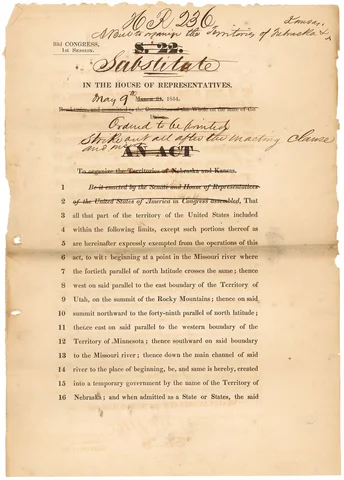 H R 236
A Bill to organize the Territories of Nebraska & Kansas
33d CONGRESS,
1st SESSION.
S. 22.
Substitute
IN THE HOUSE OF REPRESENTATIVES.
May 9th March 21, 1854.
Read twice, and committed to the Committee of the Whole on the state of the
Union.
Ordered to be printed
Strike out all after the enacting clause
and insert
AN ACT
To organize the Territories of Nebraska and Kansas.
1 Be it enacted by the Senate and House of Representatives
2 of the United States of America in Congress assembled, That
3 all that part of the territory of the United States included
4 within the following limits, except such portions thereof as
5 are hereinafter expressly exempted from the operations of this
6 act, to wit: beginning at a point in the Missouri river where
7 the fortieth parallel of north latitude crosses the same; thence
8 west on said parallel to the east boundary of the Territory of
9 Utah, on the summit of the Rocky Mountains; thence on said
10 summit northward to the forty-ninth parallel of north latitude;
11 thence east on said parallel to the western boundary of the
12 Territory of Minnesota; thence southward on said boundary
13 to the Missouri river; thence down the main channel of said
14 river to the place of beginning, be, and same is hereby, created
15 into a temporary government by the name of the Territory of
16 Nebraska; and when admitted as a State or States, the said